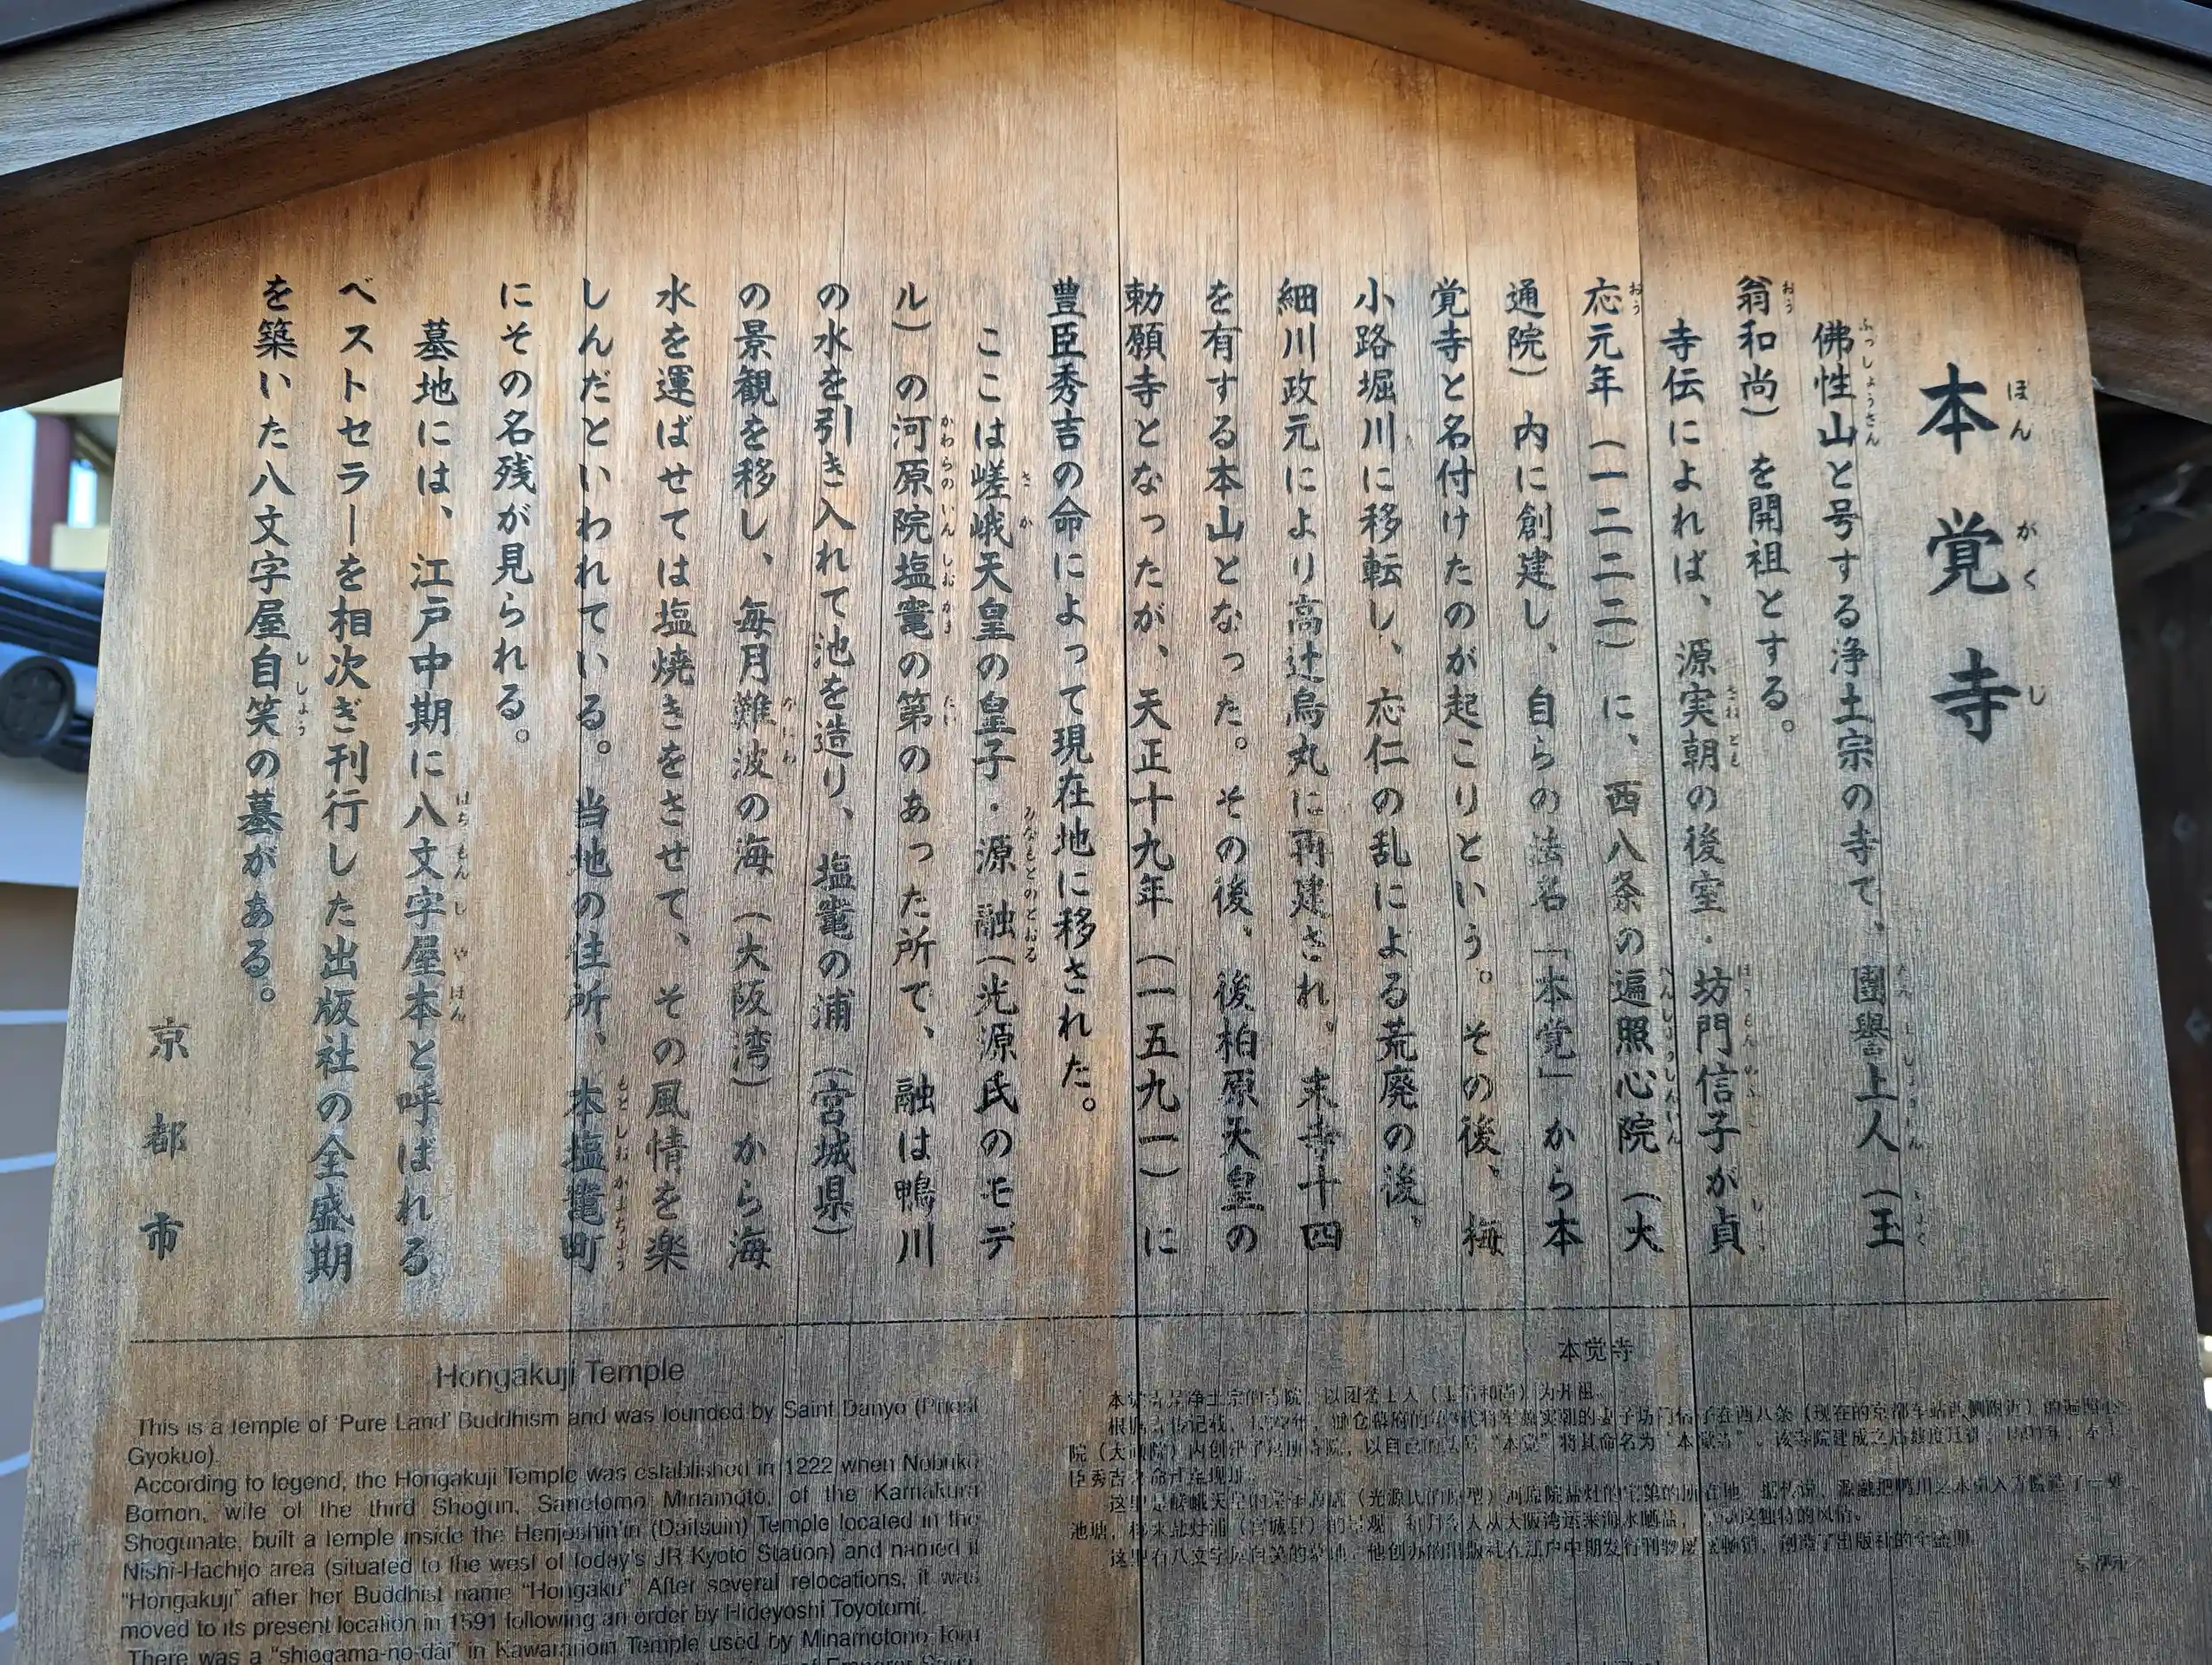 本覚寺
佛性山と号する浄土宗の寺で、團譽上人（玉
翁和尚）を開祖とする。
寺伝によれば、源実朝の後室・坊門信子が貞
応元年（一二二二）に、西八条の遍照心院（大
通院）内に創建し、自らの法名「本覚」から本
覚寺と名付けたのが起こりという。その後、梅
小路堀川に移転し、応仁の乱による荒廃の後、
細川政元により高辻烏丸に再建され、末寺十四
を有する本山となった。その後、後柏原天皇の
勅願寺となったが、天正十九年（一五九一）に
豊臣秀吉の命によって現在地に移された。
ここは嵯峨天皇の皇子・源融（光源氏のモデ
ル）の河原院塩竈の第のあった所で、融は鴨川
の水を引き入れて池を造り、塩竈の浦（宮城県）
の景観を移し、毎月難波の海（大阪湾）から海
水を運ばせては塩焼きをさせて、その風情を楽
しんだといわれている。当地の住所、本塩竈町
にその名残が見られる。
墓地には、江戸中期に八文字屋本と呼ばれる
ベストセラーを相次ぎ刊行した出版社の全盛期
を築いた八文字屋自笑の墓がある。
京都市
Hongakuji Temple
This is a temple of ‘Pure Land’ Buddhism and was founded by Saint Danyo (Priest
Gyokuo).
According to legend, the Hongakuji Temple was established in 1222 when Nobuko
Bomon, wife of the third Shogun, Sanetomo Minamoto, of the Kamakura
Shogunate, built a temple inside the Henjoshin'in (Daitsuin) Temple located in the
Nishi-Hachijo area (situated to the west of today's JR Kyoto Station) and named it
“Hongakuji” after her Buddhist name “Hongaku”. After several relocations, it was
moved to its present location in 1591 following an order by Hideyoshi Toyotomi.
There was a “shiogama-no-dai” in Kawaranoin Temple used by Minamotono Toru
of Emperor
本觉寺
本觉寺是净土宗的寺院，以团誉上人（玉翁和尚）为开祖。
院（大通院）内创建了这所寺院，以自己的法号“本觉”将其命名为“本觉寺”。该寺院建成之后
臣秀吉之命迁至现址。
这里是嵯峨天皇的皇子源融（光源氏的原型）河原院盐灶的宅第的所在地。据传说，源融把鸭川之水引入
池塘，移来盐灶浦（宫城县）的景观，每月令人从大阪湾运来海水晒盐，
这里有八文字屋自笑的墓地。他创办的出版社在江户中期发行刊物